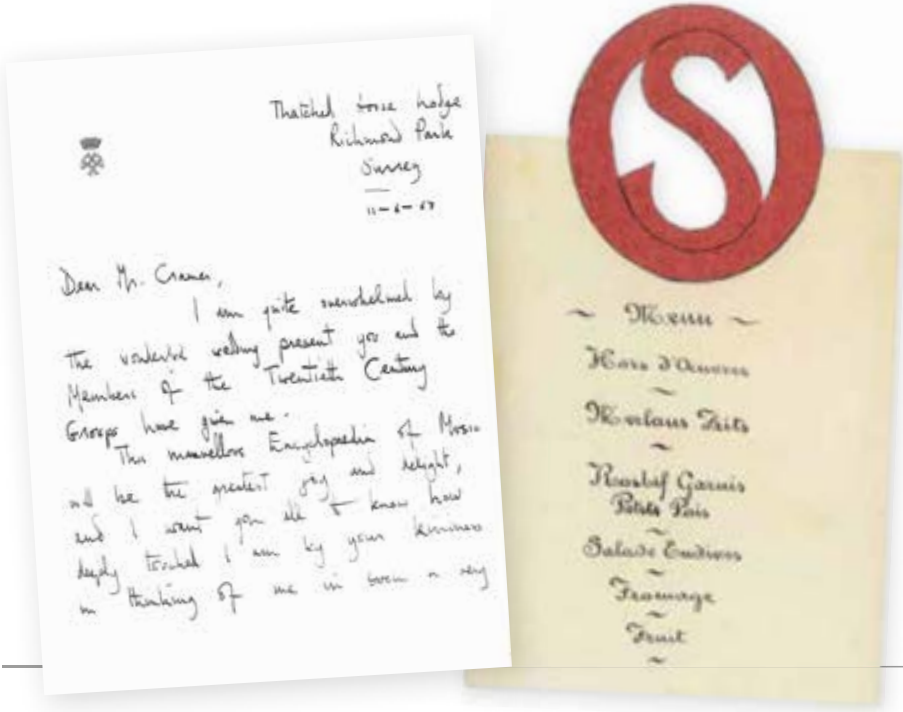 Thatched House Lodge
Richmond Park
Surrey
11-6-63
Dear Mr. Cramer,
I am quite overwhelmed by
the wonderful wedding present you and the
Members of the Twentieth Century
Groups have given me.
This marvellous Encyclopaedia of Music
will be the greatest joy and delight,
and I want you all to know how
deeply touched I am by your kindness
in thinking of me in such a very
S
~ Menu ~
Hors d'Oeuvres
~
Merlans Frits
~
Roastbif Garnis
Petits Pois
~
Salade Endives
~
Fromage
~
Fruit
~